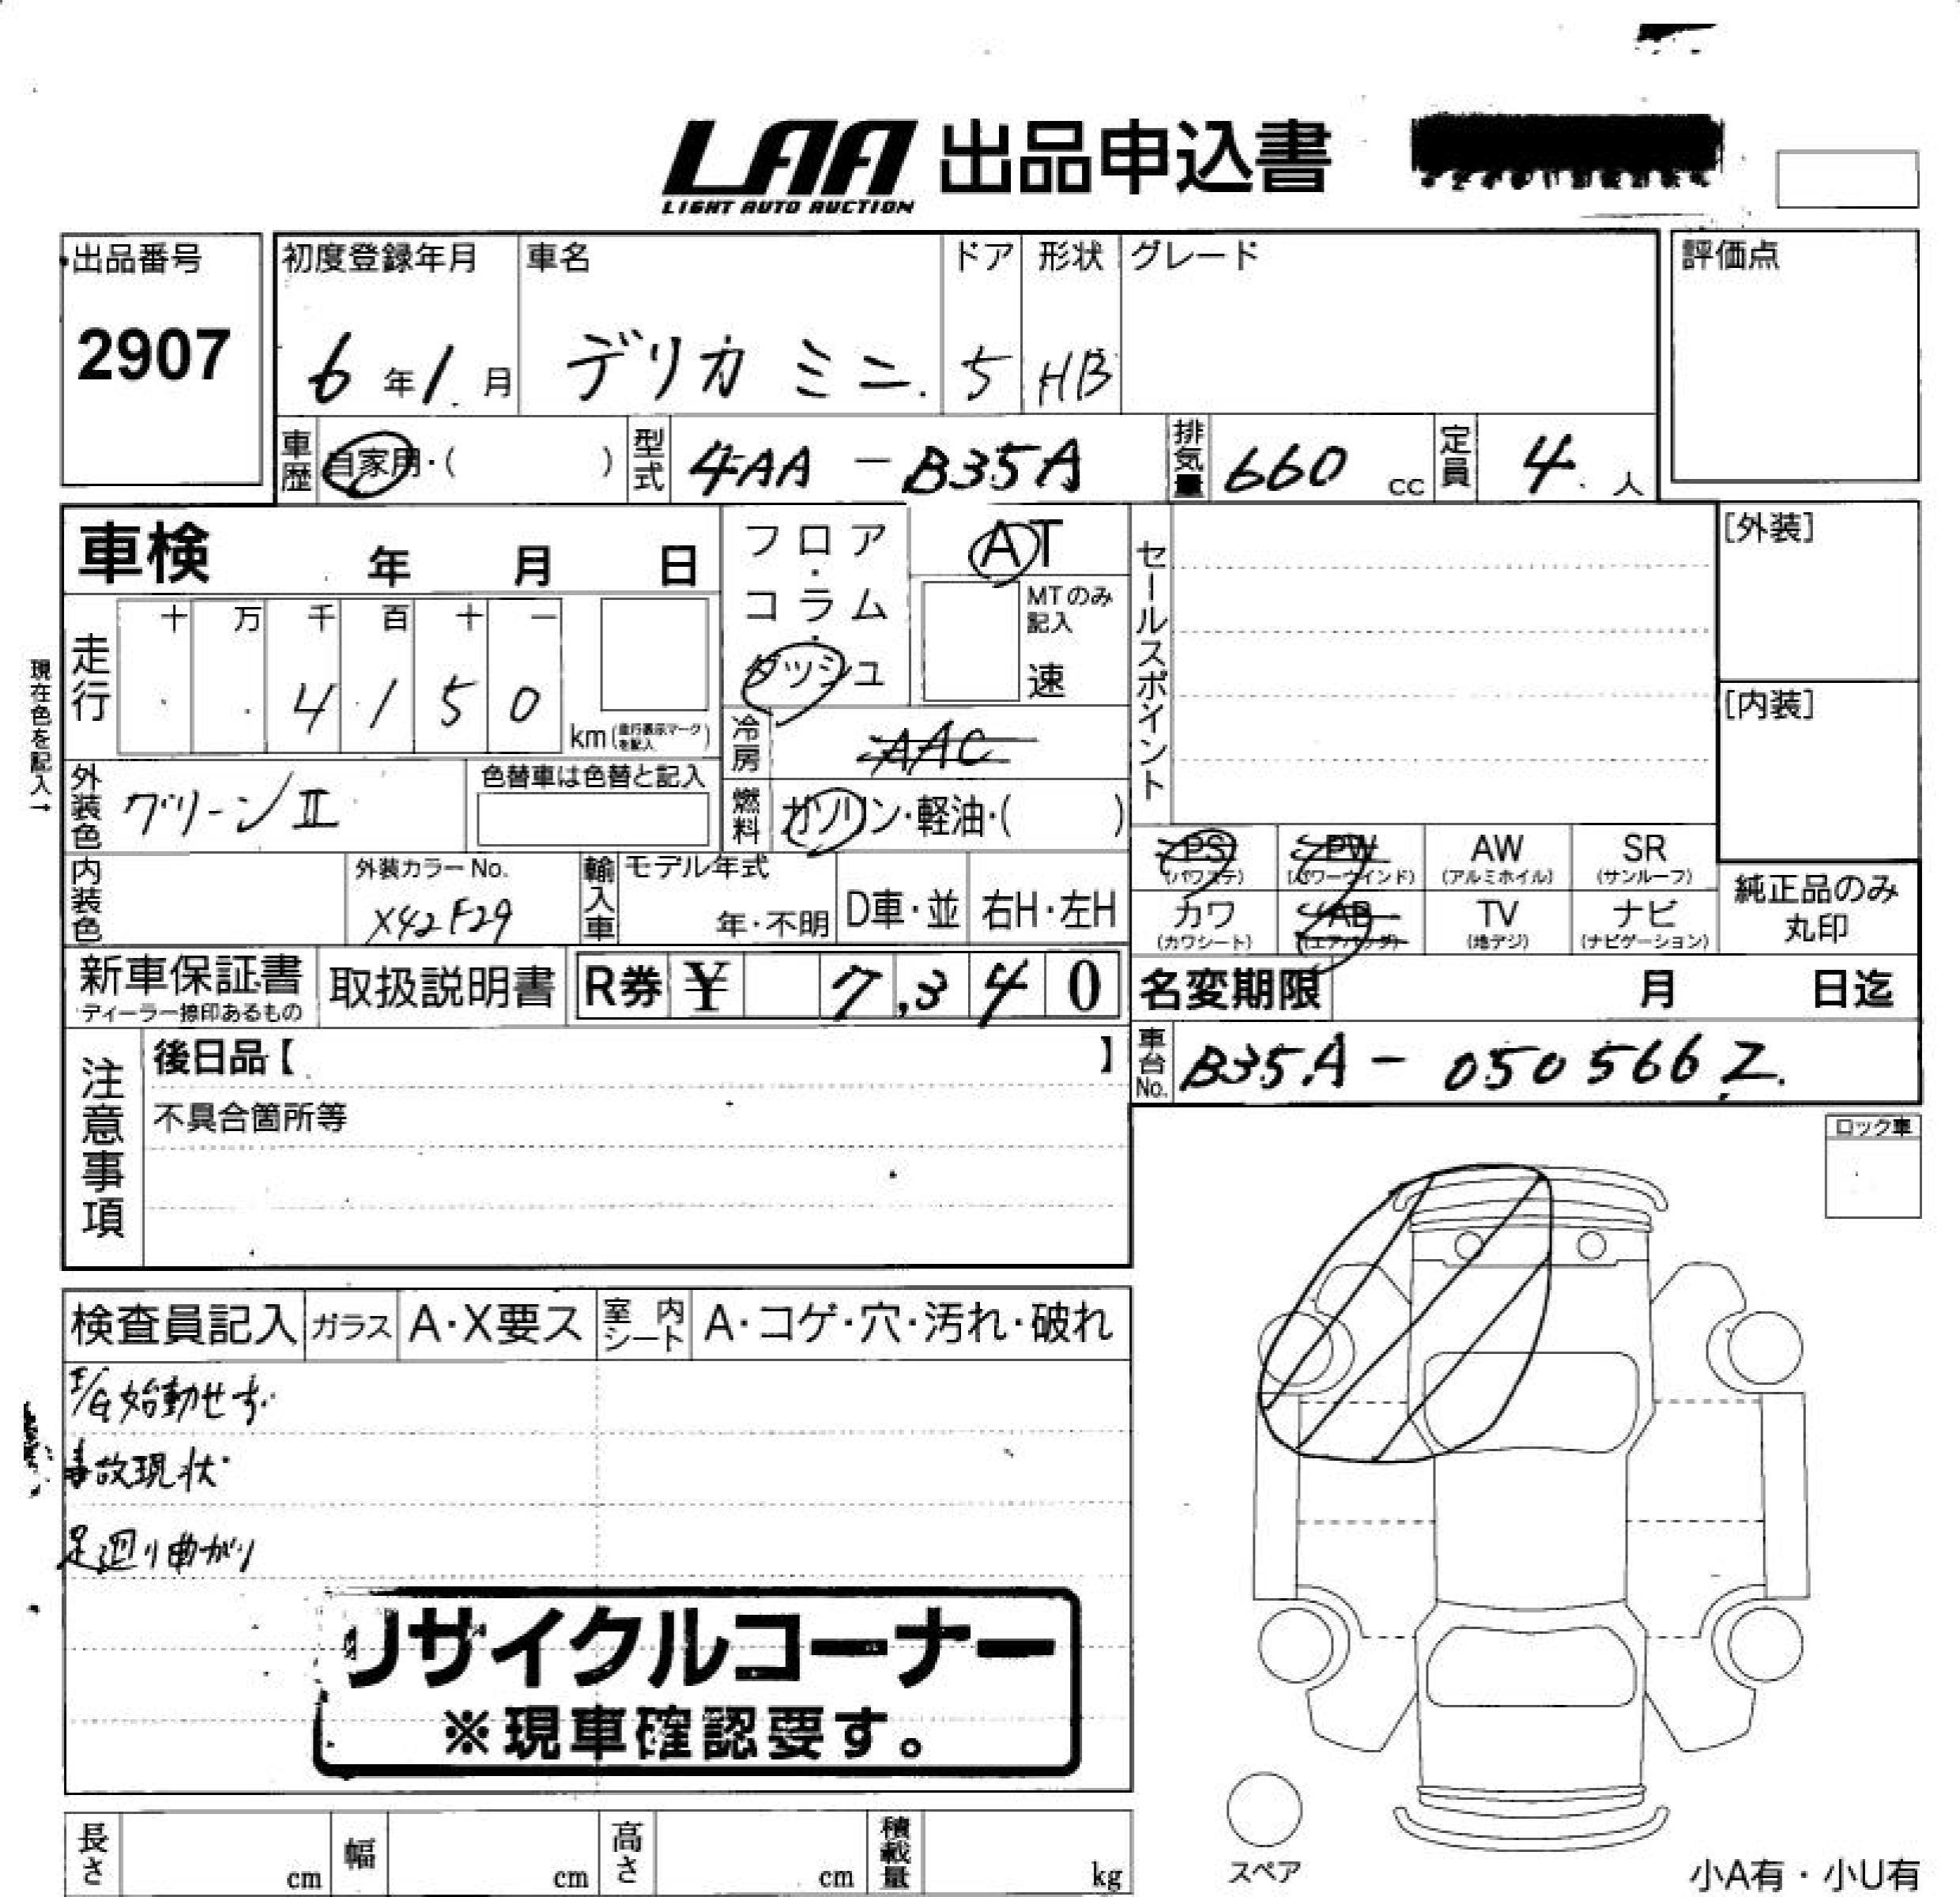 LAA 出品申込書
LIGHT AUTO AUCTION
出品番号
2907
初度登録年月
6年1月
車名
デリカミニ
ドア
5
形状
HB
グレード
評価点
車歴 自家用・( )
型式 4AA-B35A
排気量 660 cc
定員 4人
車検 年 月 日
フロア・コラム・ダッシュ
AT
MTのみ記入
速
現在色を記入→
走行
十 万 千 百 十 一
4 1 5 0
km(走行表示マークを記入)
冷房 AAC
外装色 グリーンII
色替車は色替と記入
燃料 ガソリン・軽油・( )
内装色
外装カラーNo.
X42 F29
輸入車
モデル年式
年・不明
D車・並
右H・左H
セールスポイント
[外装]
[内装]
PS (パワステ)
PW (パワーウインド)
AW (アルミホイル)
SR (サンルーフ)
カワ (カワシート)
AB (エアバッグ)
TV (地デジ)
ナビ (ナビゲーション)
純正品のみ丸印
新車保証書
ディーラー捺印あるもの
取扱説明書
R券 ¥ 7,340
名変期限 月 日迄
車台No. B35A-0505662.
注意事項
後日品【 】
不具合箇所等
ロック車
検査員記入
ガラス A・X要ス
室内シート A・コゲ・穴・汚れ・破れ
E/G始動せず.
事故現状
足廻り曲がり
リサイクルコーナー
※現車確認要す。
スペア
長さ cm
幅 cm
高さ cm
積載量 kg
小A有・小U有